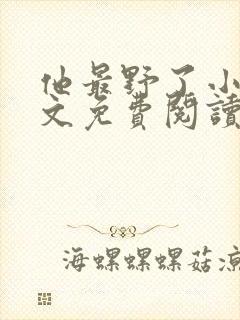 他最野了小
文免費閱讀
海螺螺螺菇凉